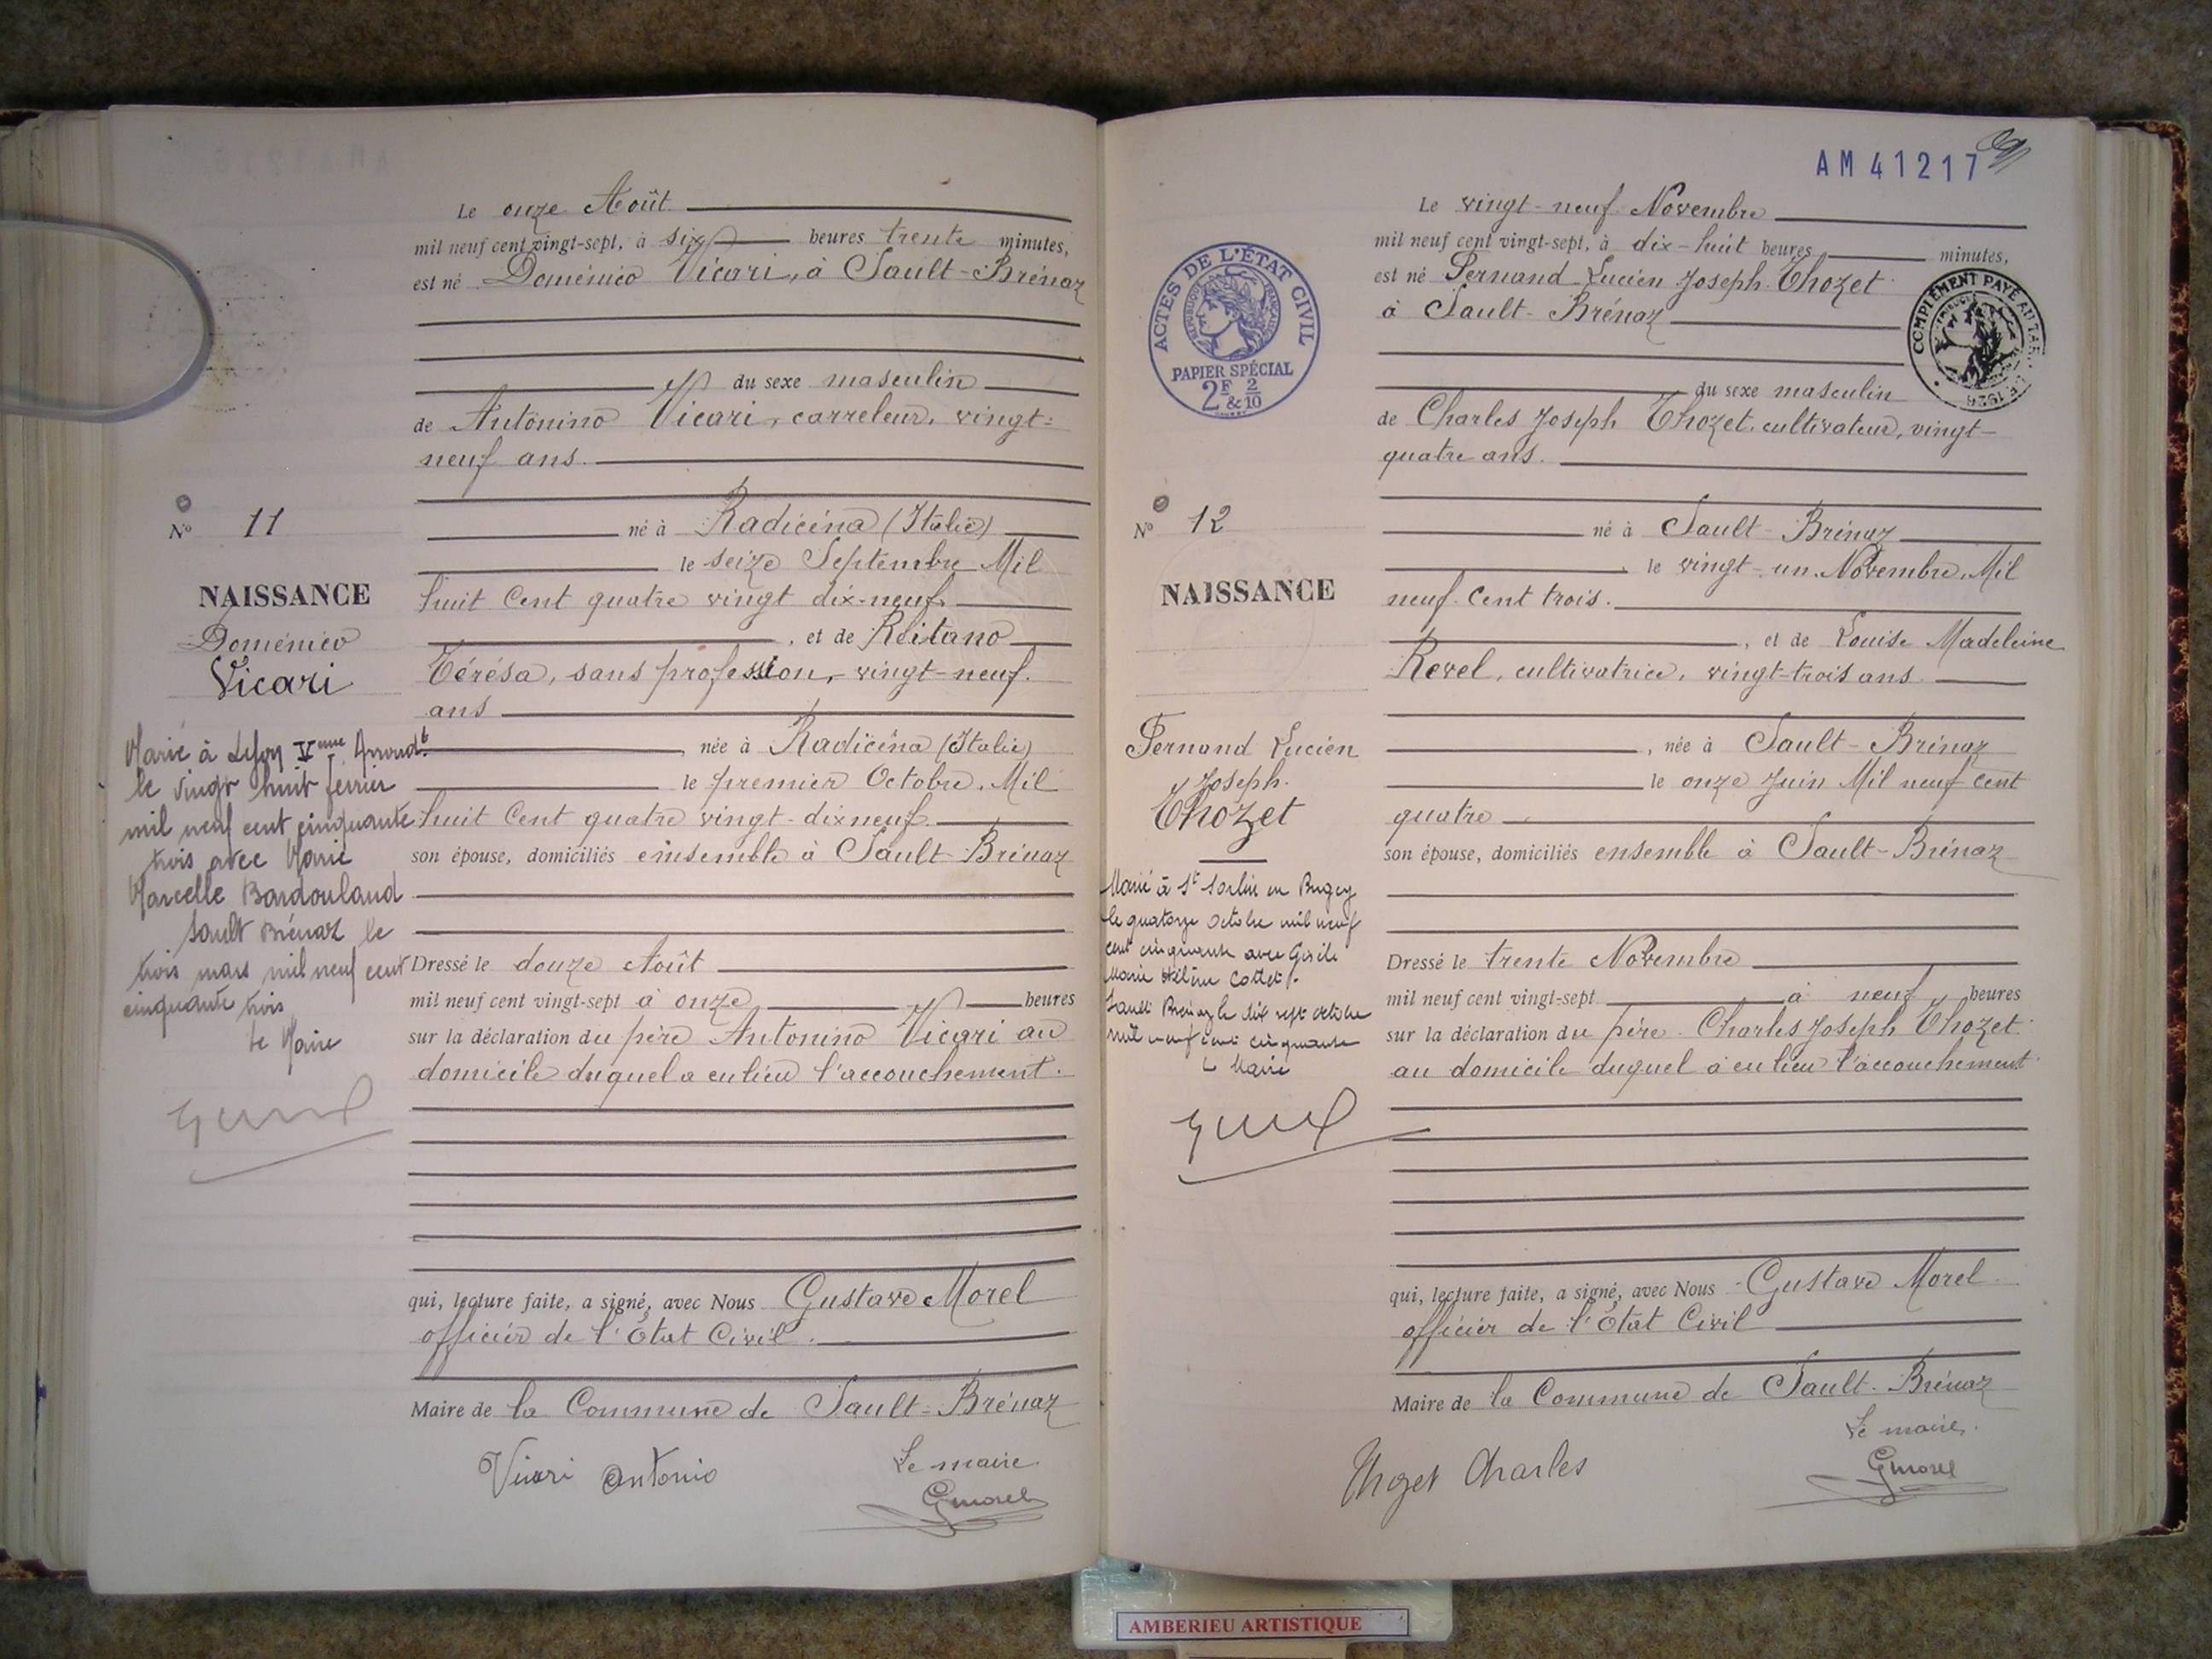 Le onze Août
mil neuf cent vingt-sept, à six heures trente minutes,
est né Doménico Vicari, à Sault-Brénaz
du sexe masculin
de Antonino Vicari, carreleur, vingt-
neuf ans.
né à Radicéna (Italie)
le seize Septembre Mil
huit Cent quatre vingt dix-neuf.
, et de Reitano
Térésa, sans profession, vingt-neuf.
ans
née à Radicéna (Italie)
le premier Octobre, Mil
huit Cent quatre vingt-dixneuf
son épouse, domiciliés ensemble à Sault-Brénaz
Dressé le douze Août
mil neuf cent vingt-sept à onze heures
sur la déclaration du père Antonino Vicari au
domicile duquel a eu lieu l'accouchement.
qui, lecture faite, a signé, avec Nous Gustave Morel
officier de l'État Civil.
Maire de la Commune de Sault-Brénaz
Vicari Antonio
Le maire
GMorel
No 11
NAISSANCE
Doménico
Vicari
Marié à Lyon Vème Arrondt
le vingt huit février
mil neuf cent cinquante
trois avec Marie
Marcelle Bardouland
Sault Brénaz le
trois mars mil neuf cent
cinquante trois
Le Maire
AM 41217
Le vingt-neuf Novembre
mil neuf cent vingt-sept, à dix-huit heures minutes,
est né Fernand Lucien Joseph Thozet
à Sault-Brénaz
du sexe masculin
de Charles Joseph Thozet, cultivateur, vingt-
quatre ans.
né à Sault-Brénaz
le vingt-un Novembre, Mil
neuf Cent trois.
, et de Louise Madeleine
Revel, cultivatrice, vingt-trois ans
, née à Sault-Brénaz
le onze Juin Mil neuf cent
quatre
son épouse, domiciliés ensemble à Sault-Brénaz
Dressé le trente Novembre
mil neuf cent vingt-sept à neuf heures
sur la déclaration du père Charles Joseph Thozet
au domicile duquel a eu lieu l'accouchement
qui, lecture faite, a signé, avec Nous Gustave Morel
officier de l'État Civil
Maire de la Commune de Sault-Brénaz
Le maire,
GMorel
Thozet Charles
ACTES DE L'ÉTAT CIVIL
RÉPUBLIQUE FRANÇAISE
PAPIER SPÉCIAL
2F & 2/10
COMPLÉMENT PAYÉ AU TARIF
1926
No 12
NAISSANCE
Fernand Lucien
Joseph
Thozet
Marié à St Sorlin en Bugey
le quatorze octobre mil neuf
cent cinquante avec Gisèle
Marie Hélène Cottet.
Sault Brénaz le dix sept octobre
mil neuf cent cinquante
Le Maire
AMBERIEU ARTISTIQUE